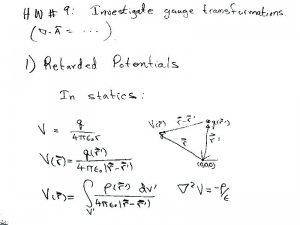 HW # 9: Investigate gauge transformations.
(∇·A⃗ = ...).
1) Retarded Potentials
In statics:
V = q / 4πε₀r
V(r⃗) = q(r⃗') / 4πε₀|r⃗-r⃗'|
V(r⃗) r⃗-r⃗' q(r⃗')
r⃗ r⃗'
(0,0,0)
V(r⃗) = ∫_V' ρ(r⃗') dv' / 4πε₀|r⃗-r⃗'| ∇²V = -ρ/ε